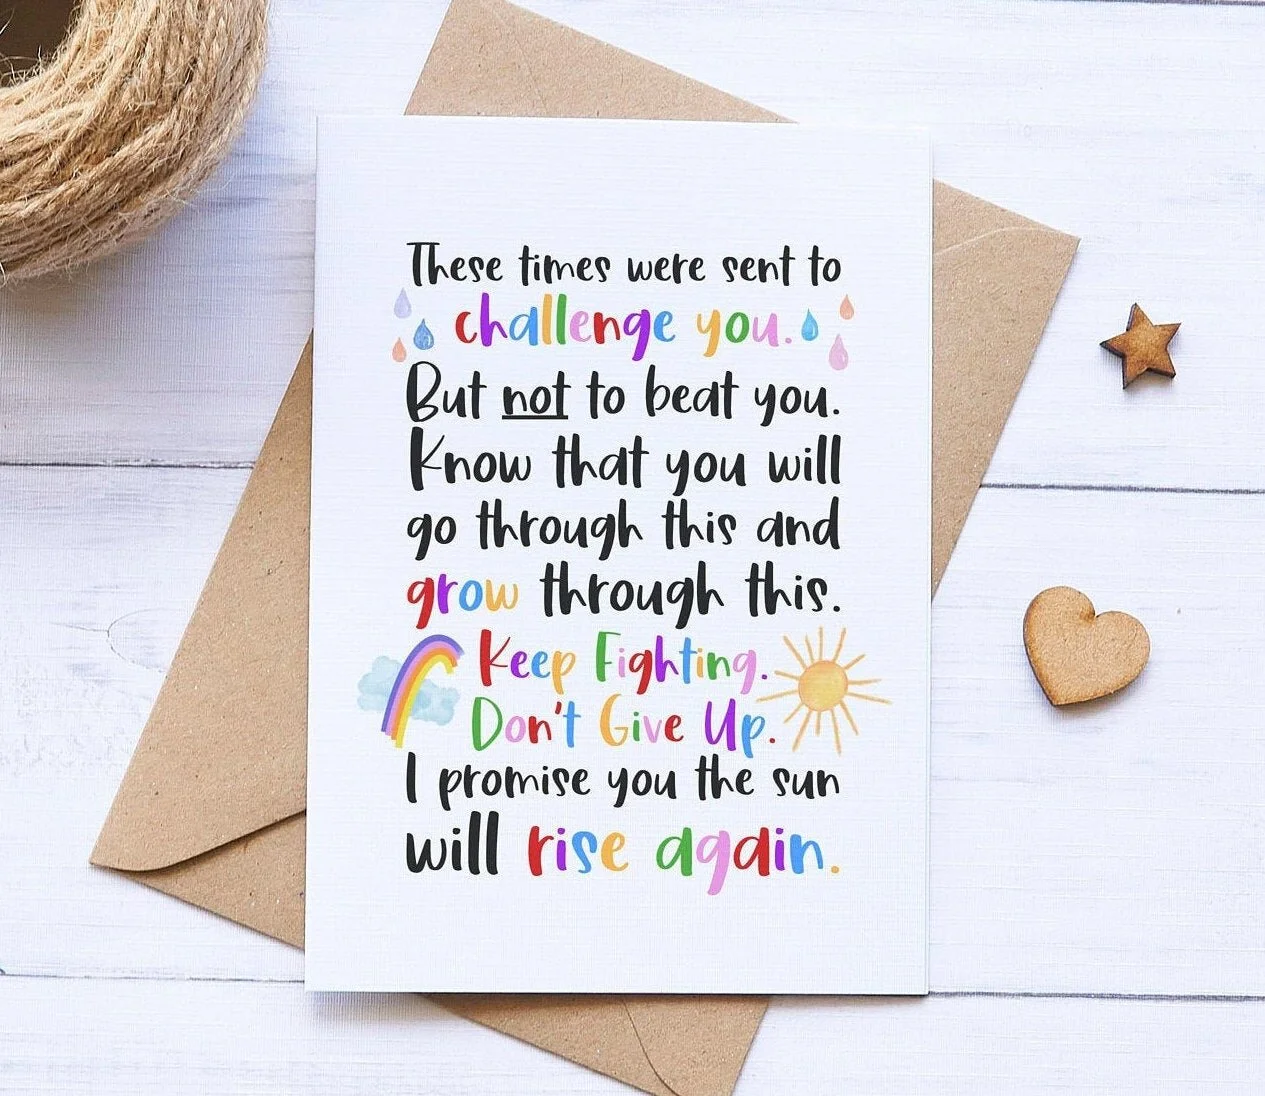 These times were sent to
challenge you.
But not to beat you.
Know that you will
go through this and
grow through this.
Keep Fighting.
Don't Give Up.
I promise you the sun
will rise again.